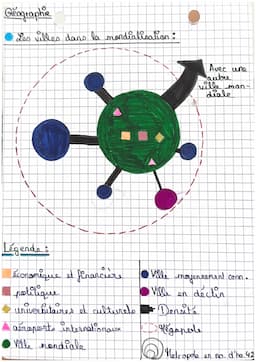 Géographie
Les villes dans la mondialisation :
Avec une
autre
ville mon-
diale
Légende :
économique et financière
politique
universitaires et culturels
aéroports internationaux
Ville mondiale
Ville moyennement conn.
Ville en déclin
Densité
Mégapole
Métropole